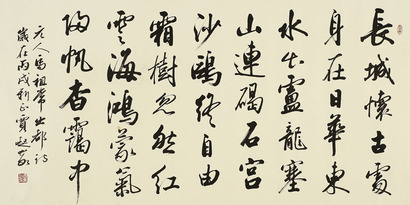 長城懷古處
身在日華東
水出盧龍塞
山連碣石宮
沙鷗終自由
霜樹忽然紅
雲海鴻蒙氣
歸帆杳靄中
元人馬祖常出都詩
歲在丙戌